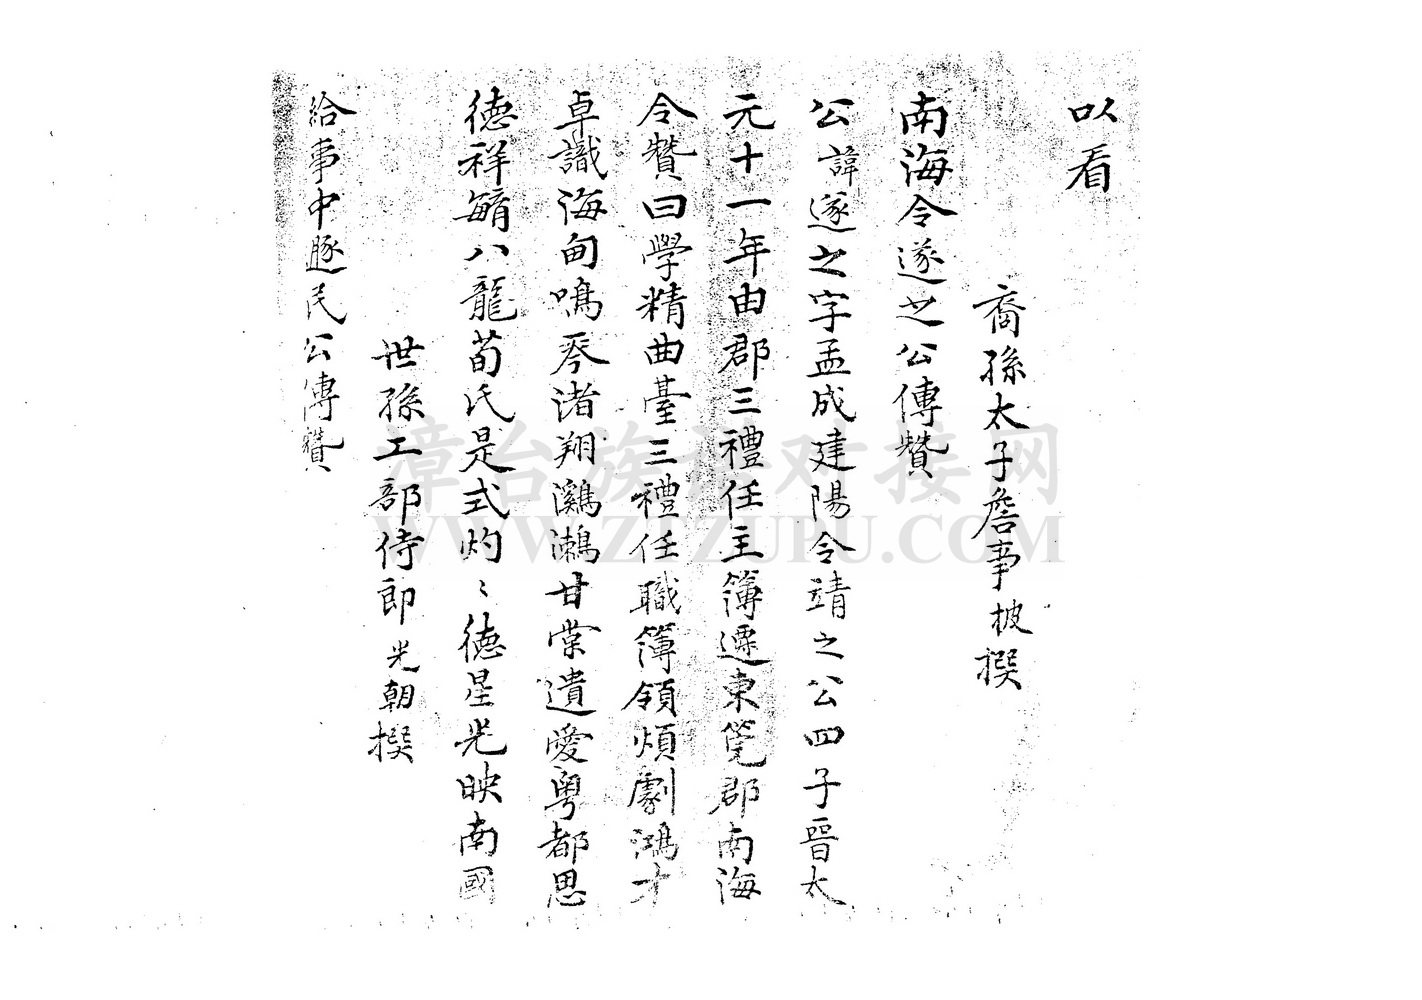 以看
裔孫太子詹事披撰
南海令遂之公傳贊
公諱遂之字孟成建陽令靖之公四子晉太
元十一年由郡三禮任主簿遷東莞郡南海
令贊曰學精曲臺三禮任職簿領煩劇鴻才
卓識海甸鳴琴渚翔鸂鷘甘棠遺愛粵都思
德祥毓八龍荀氏是式灼〻德星光映南國
世孫工部侍郎光朝撰
給事中遯民公傳贊
漳台族谱对接网
WWW.ZTZUPU.COM